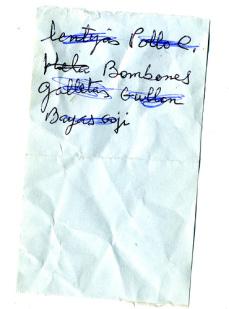 lentejas Pollo C.
Bombones
galletas Gullon
Bayas Goji